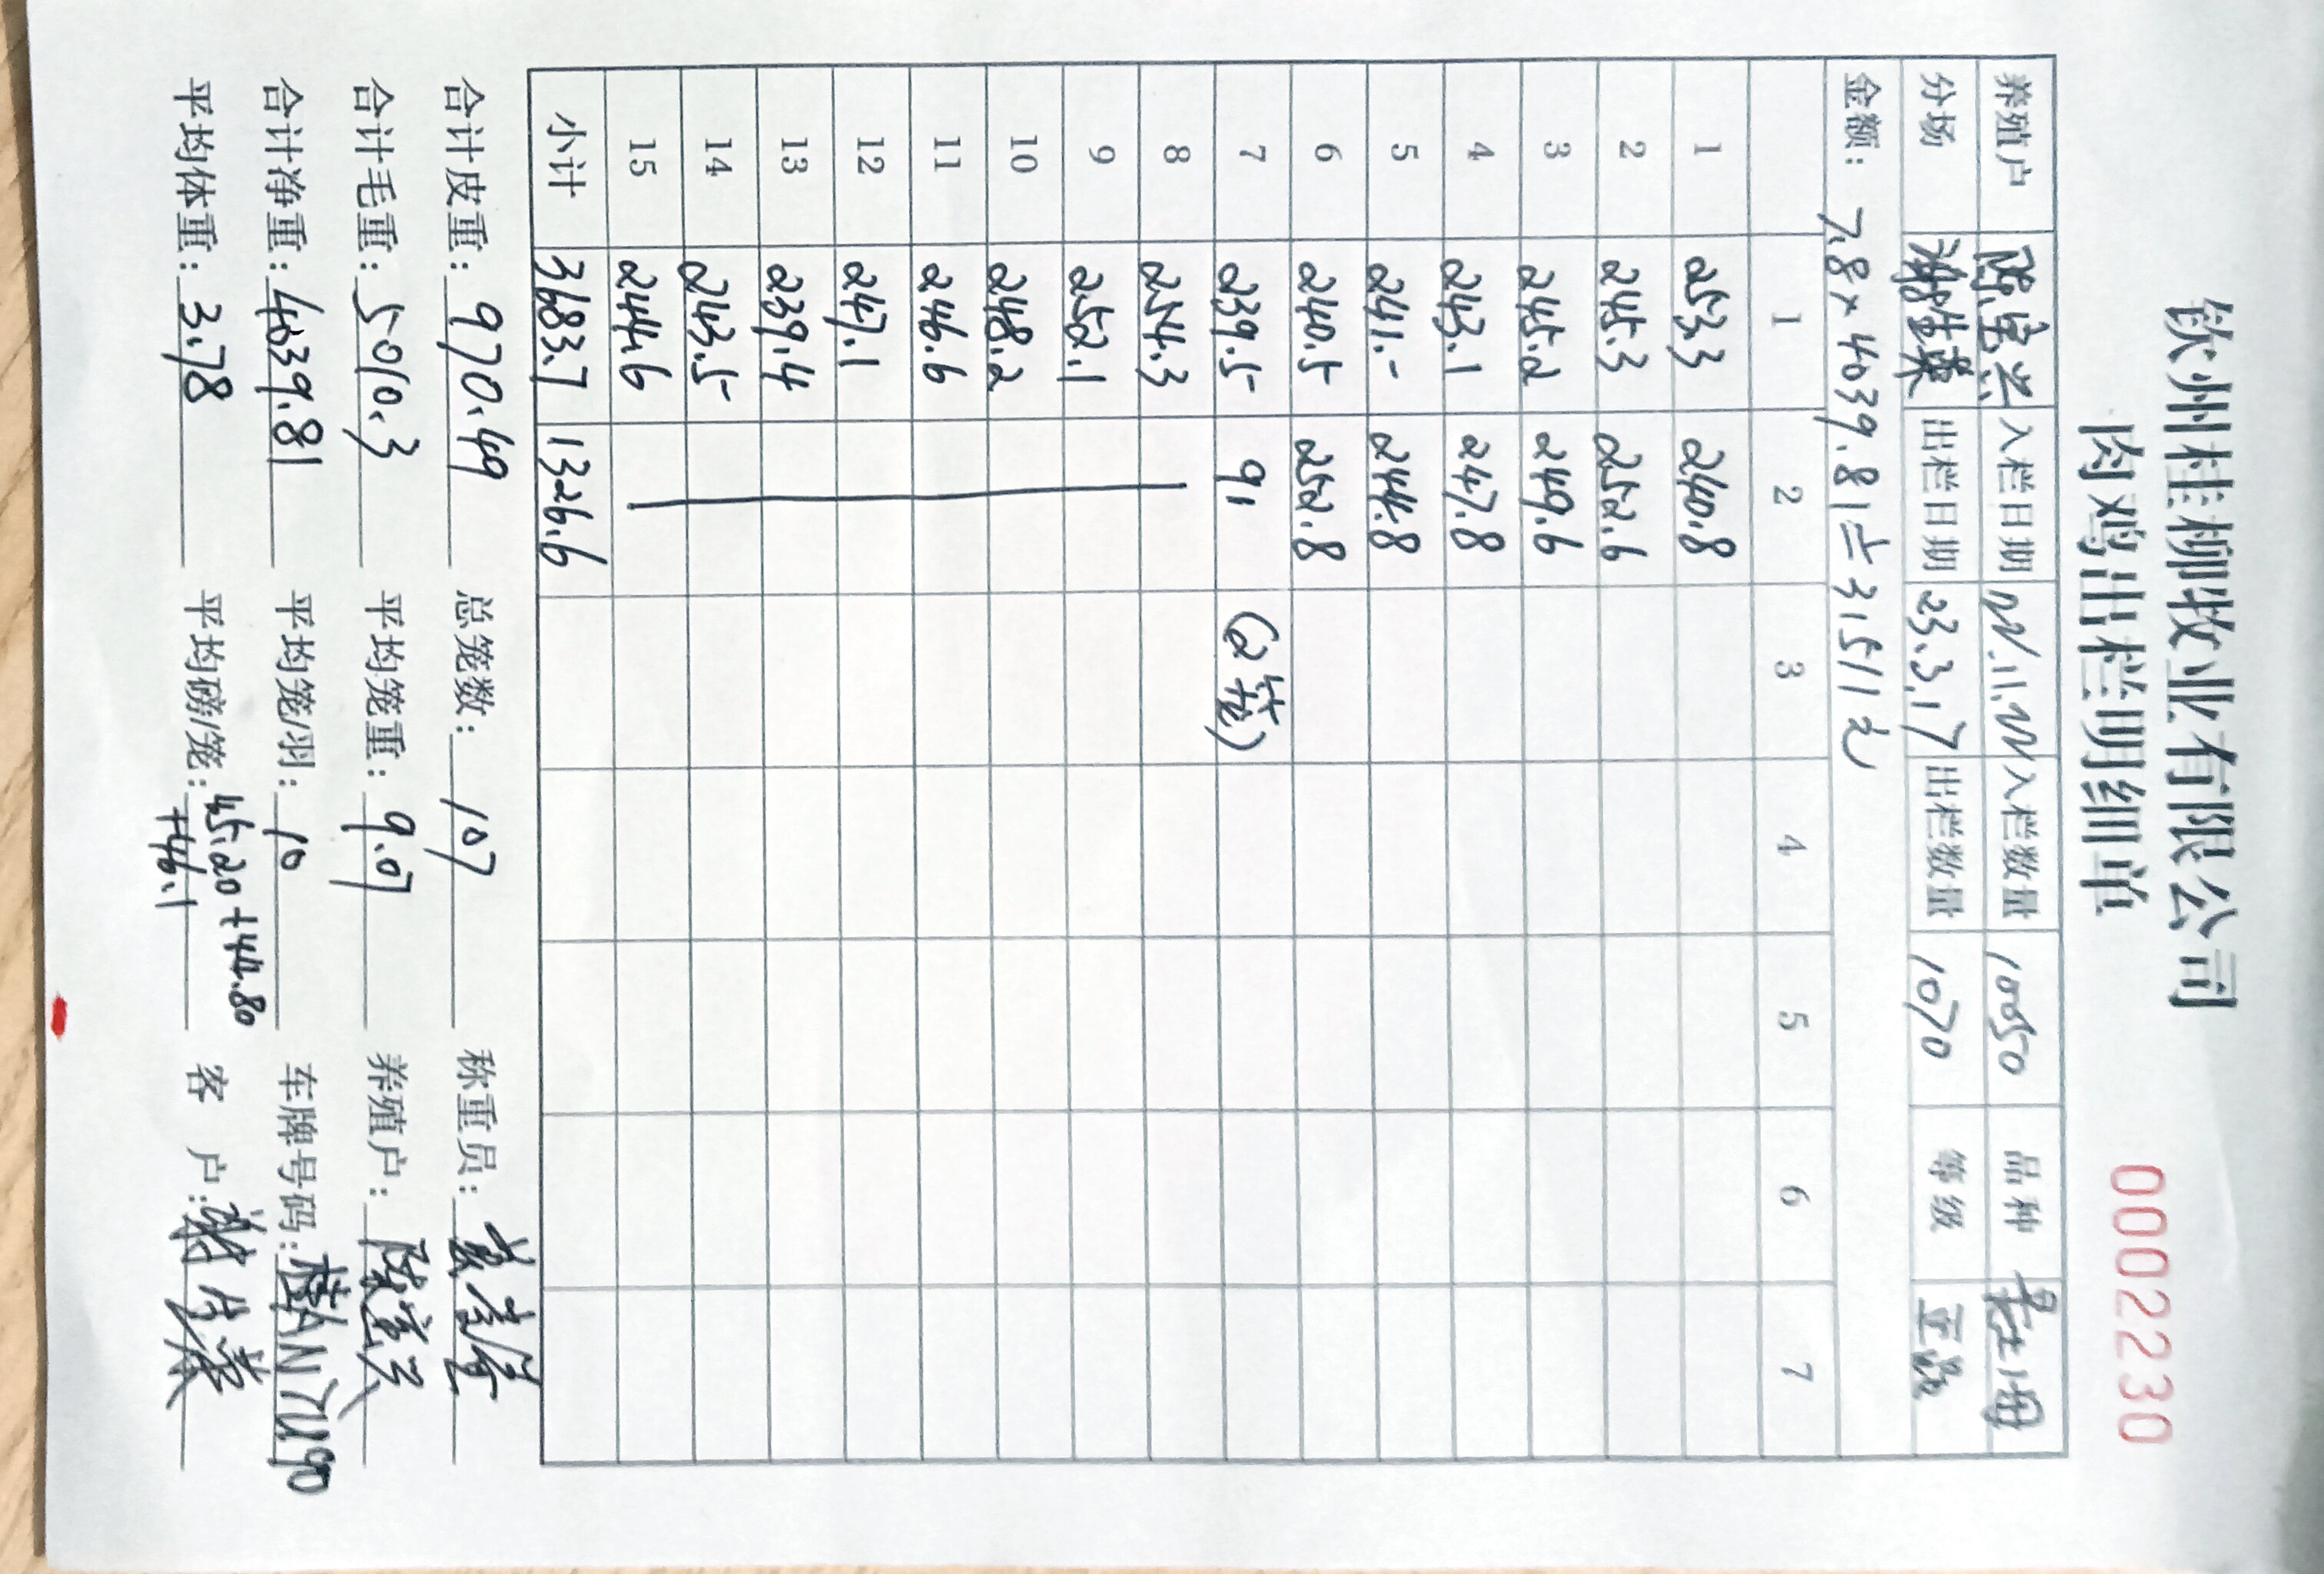 钦州桂柳牧业有限公司
肉鸡出栏明细单
00022230
养殖户 陈宝兴 入栏日期 22.11.22 入栏数量 10050 品种
分场 出栏日期 23.3.17 出栏数量 1070 等级
金额: 7.8×4039.81=31511元
1 2 3 4 5 6 7
1 253.3 240.8
2 245.3 252.6
3 245.2 249.6
4 243.1 247.8
5 241.- 244.8
6 240.5 252.8
7 239.5 91 (2笼)
8 254.3
9 252.1
10 248.2
11 246.6
12 247.1
13 239.4
14 243.5
15 244.6
小计 3683.7 1326.6
合计皮重: 970.49 总笼数: 107 称重员:
合计毛重: 5010.3 平均笼重: 9.07 养殖户: 陈宝兴
合计净重: 4039.81 平均笼/羽: 10 车牌号码:
平均体重: 3.78 平均磅/笼: 45.20+44.80+46.1 客 户: